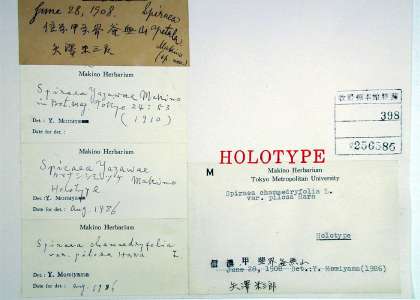 June 28, 1908. Spiraea
apetala
Makino
(sp. nov.)
Makino Herbarium
Spiraea Yazawae Makino
in Bot. Mag. Tokyo 24: 53
(1910)
Det: Y. Momiyama
Date for det:
Makino Herbarium
Spiraea Yazawae
Makino
Holotype
Det: Y. Momiyama
Date for det: Aug. 1986
Makino Herbarium
Spiraea chamaedryfolia L.
var. pilosa Hara
Det: Y. Momiyama
Date for det: Aug. 1986
398
256586
HOLOTYPE
M
Makino Herbarium
Tokyo Metropolitan University
Spiraea chamedryfolia L.
var. pilosa Hara
Holotype
信濃 甲斐界釜無山
June 28, 1908 Det.:Y. Momiyama(1986)
矢澤